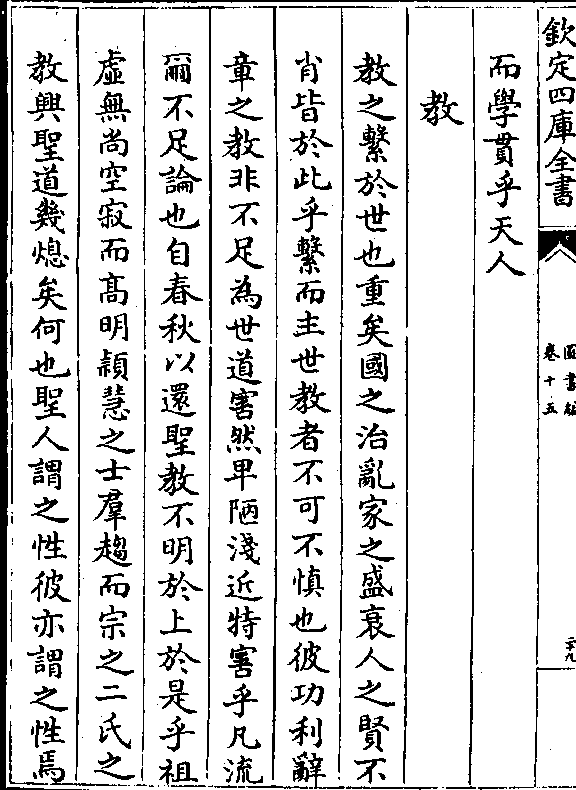 欽定四庫全書
圖書編
卷十五
二十九
而學貫乎天人
教
教之繫於世也重矣國之治亂家之盛衰人之賢不
肖皆於此乎繫而主世教者不可不慎也彼功利辭
章之教非不足為世道害然卑陋淺近特害乎凡流
爾不足論也自春秋以還聖教不明於上於是乎祖
虛無尚空寂而髙明頴慧之士羣趨而宗之二氏之
教興聖道幾熄矣何也聖人謂之性彼亦謂之性焉